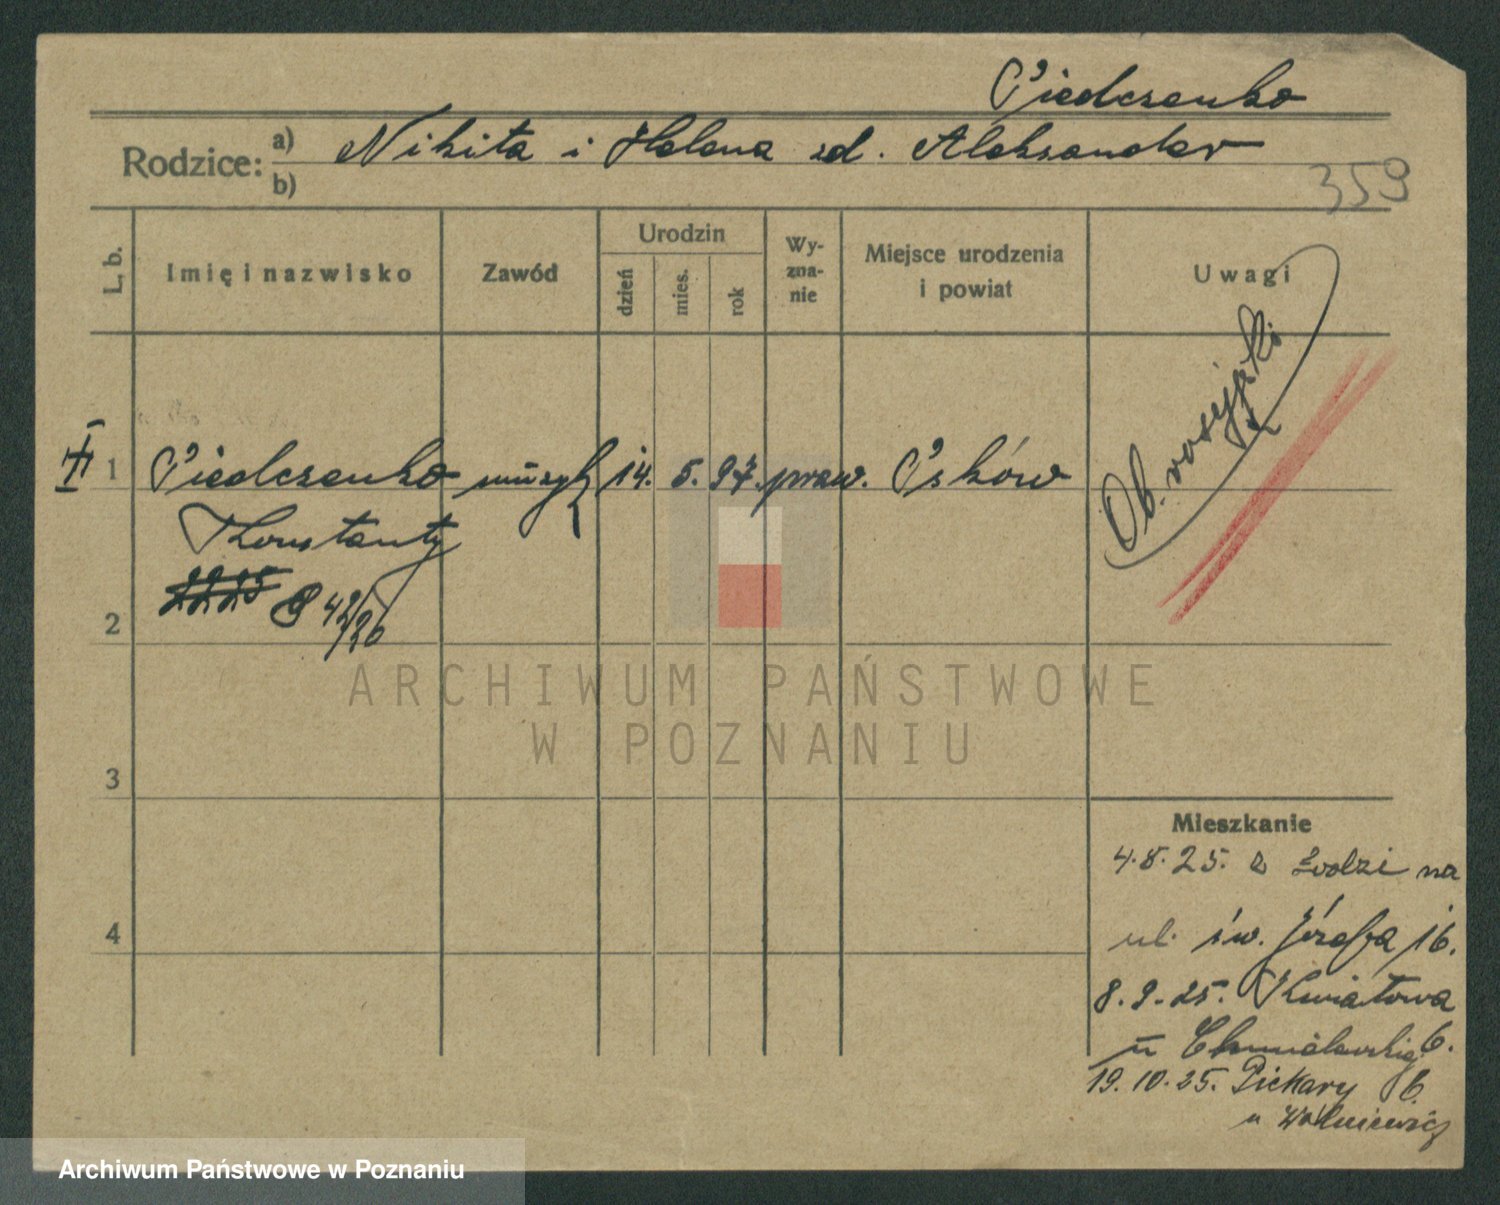 Piedczenko
Rodzice: a) Nikita i Helena zd. Aleksander
b)
359
L. b.
Imię i nazwisko
Zawód
Urodzin
dzień
mies.
rok
Wy-
zna-
nie
Miejsce urodzenia
i powiat
Uwagi
1 Piedczenko muzyk 14. 5. 97. praw. Psków
Konstanty
42/26
Ob. rosyjski
2
3
4
ARCHIWUM PAŃSTWOWE
W POZNANIU
Mieszkanie
4.8.25. z Łodzi na
ul. św. Józefa 16.
8.9.25. Kwiatowa 6.
u Chmielewskiej
19.10.25. Piekary 6.
u
Archiwum Państwowe w Poznaniu